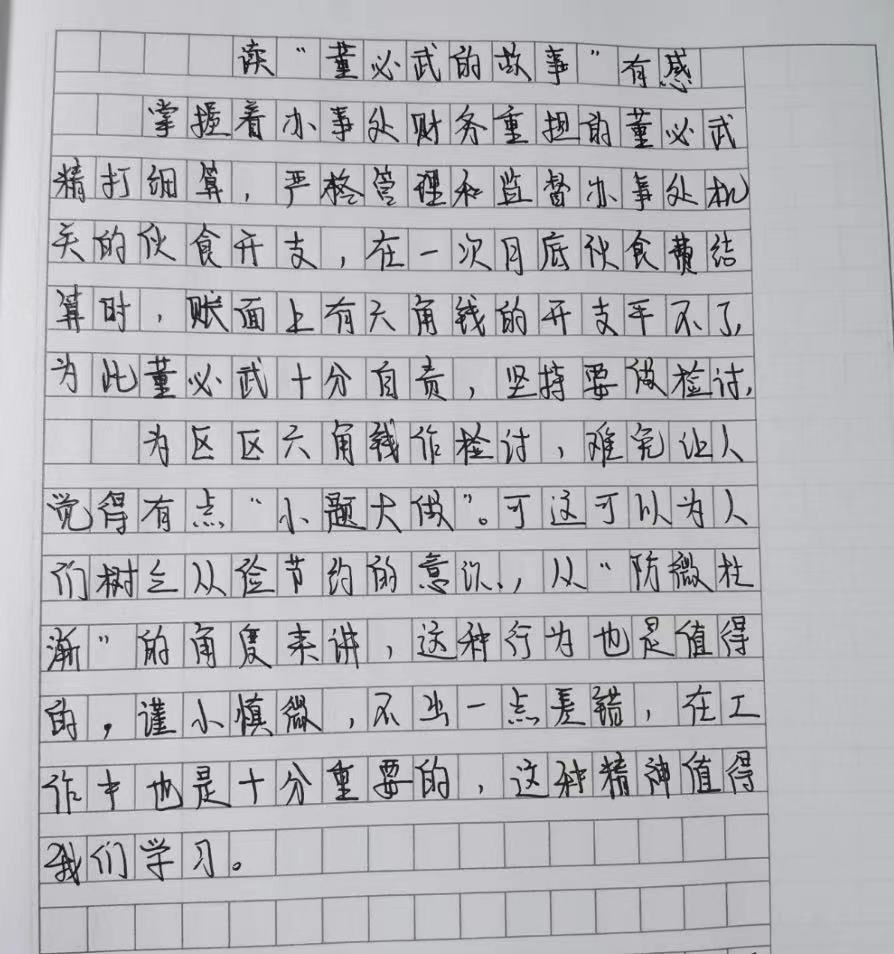 读“董必武的故事”有感
掌握着办事处财务重担的董必武
精打细算，严格管理和监督办事处机
关的伙食开支，在一次月底伙食费结
算时，账面上有六角钱的开支平不了，
为此董必武十分自责，坚持要做检讨，
为区区六角钱作检讨，难免让人
觉得有点“小题大做”。可这可以为人
们树立从俭节约的意识，从“防微杜
渐”的角度来讲，这种行为也是值得
的，谨小慎微，不出一点差错，在工
作中也是十分重要的，这种精神值得
我们学习。